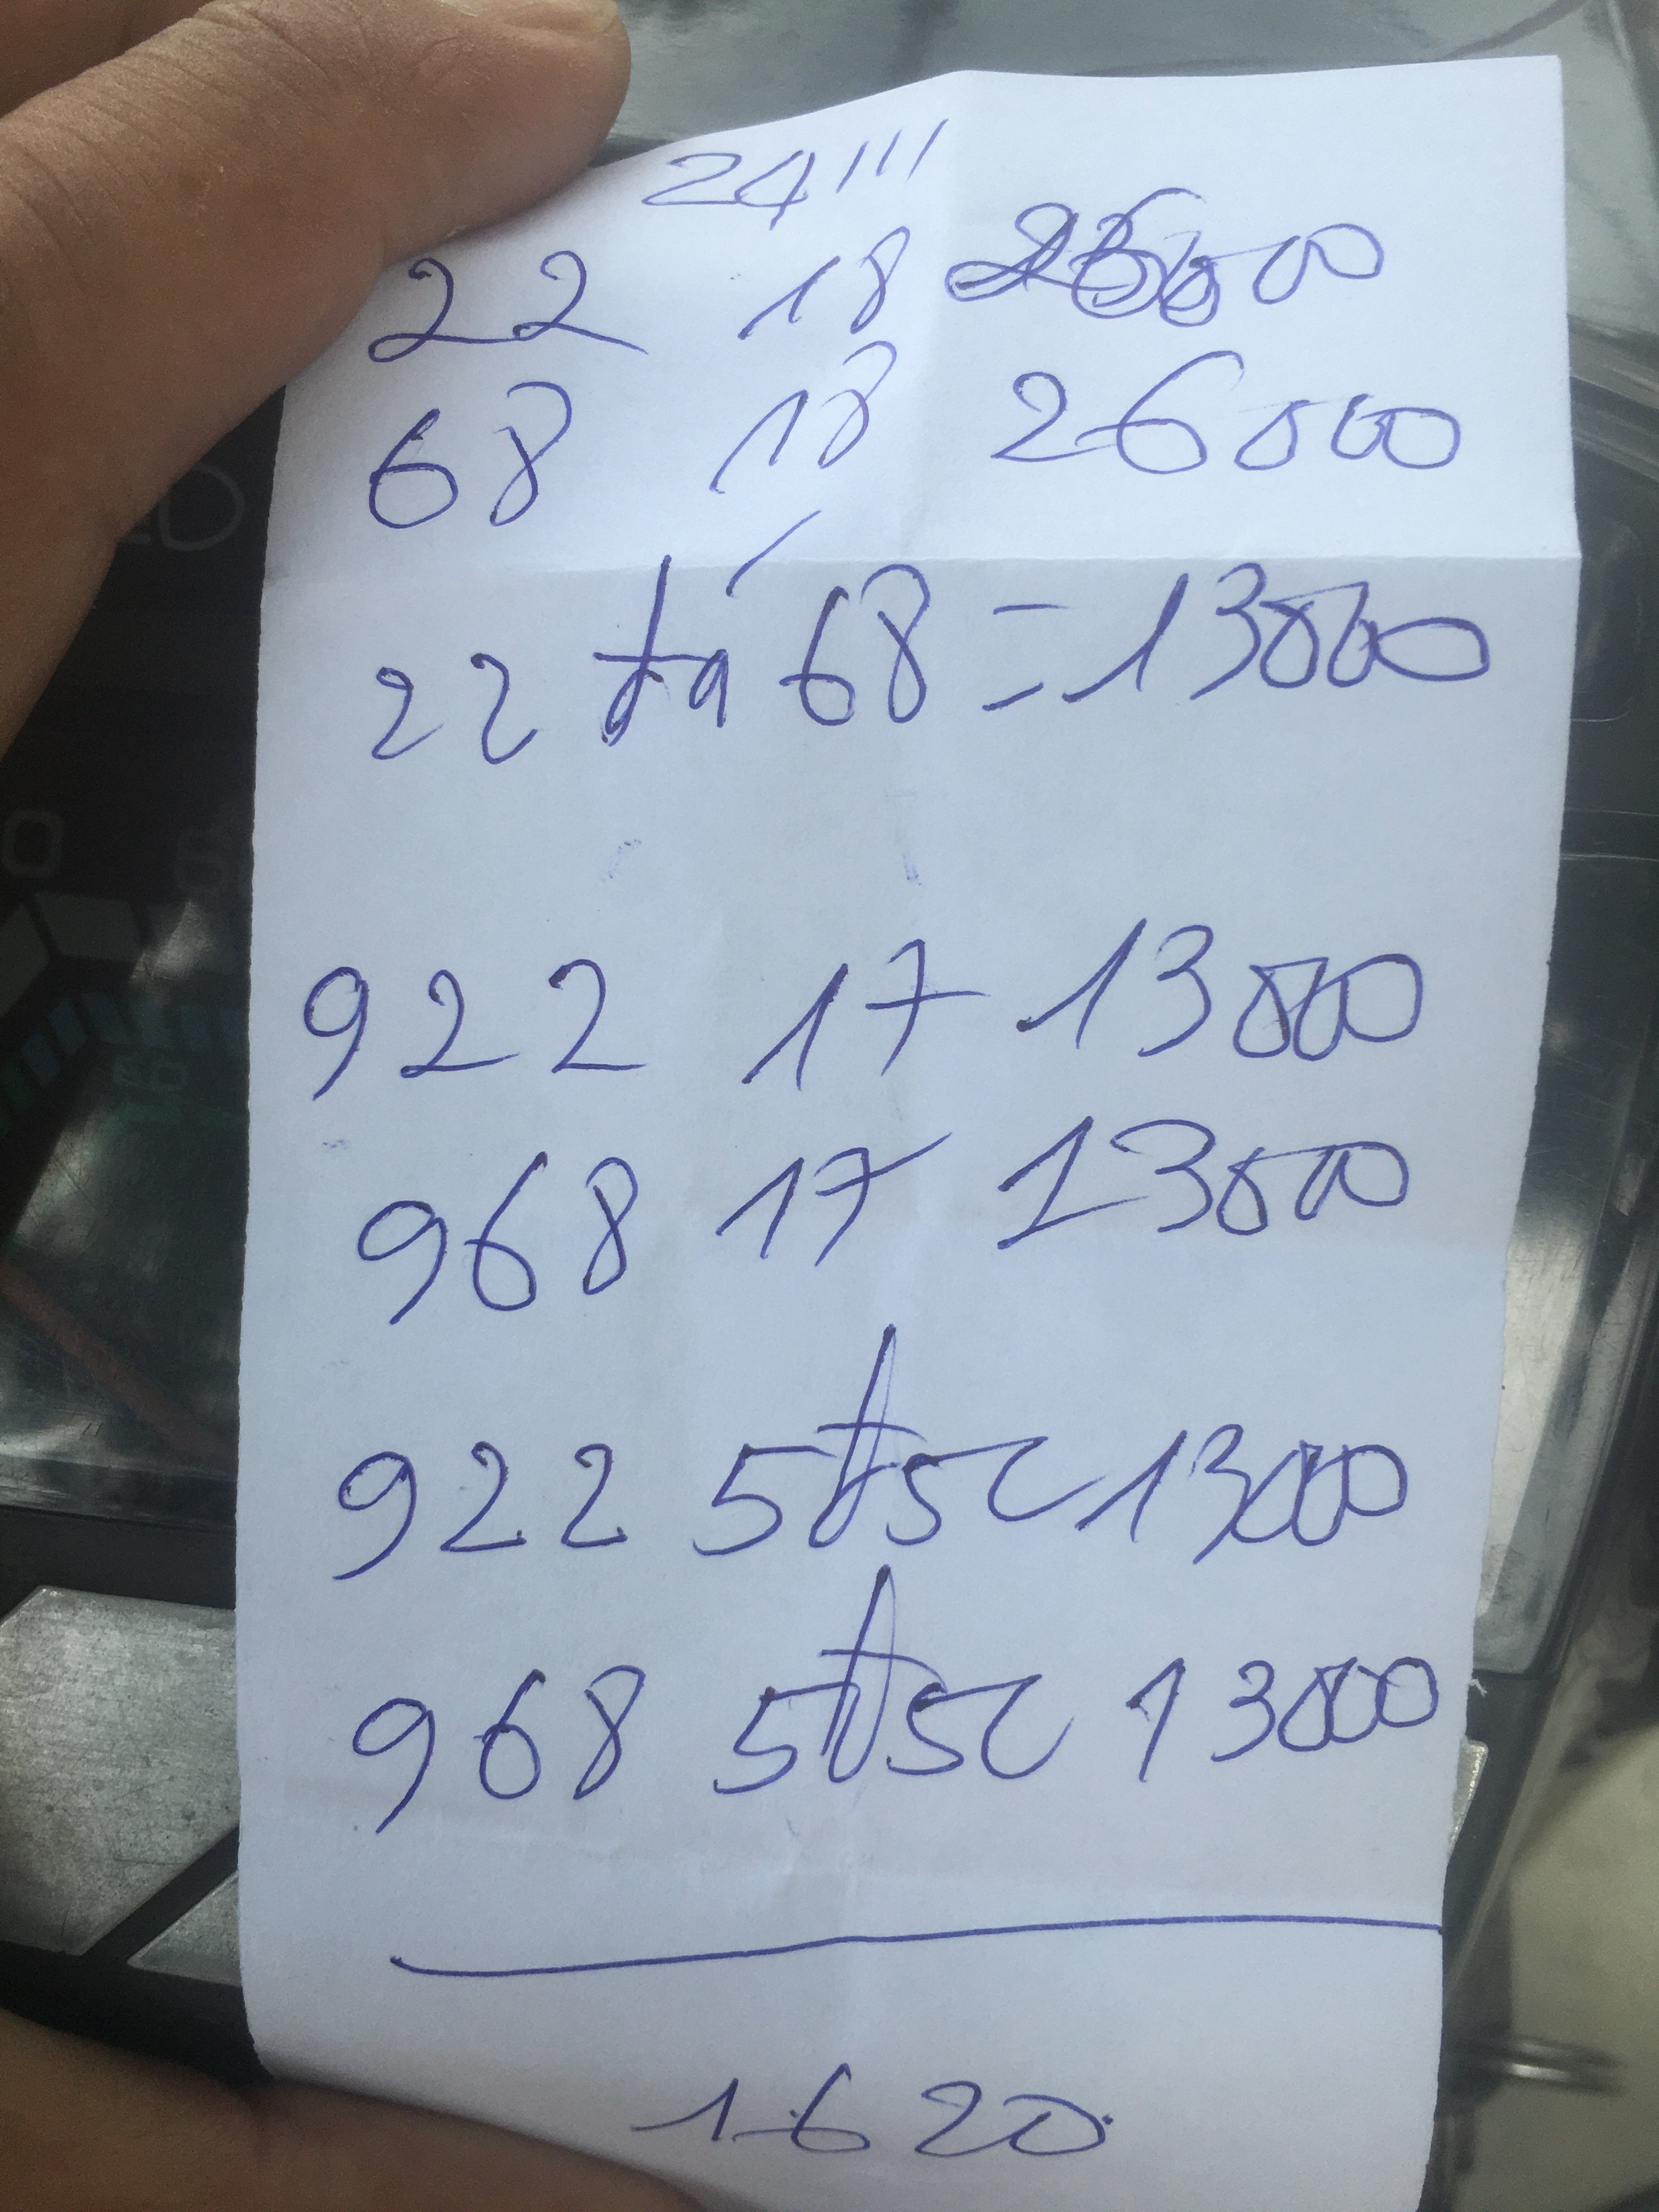 24///
22 18 26000
68 18 26000
22 đá 68 = 13000
922 17 13000
968 17 13000
922 5đ5c 13000
968 5đ5c 13000
1620